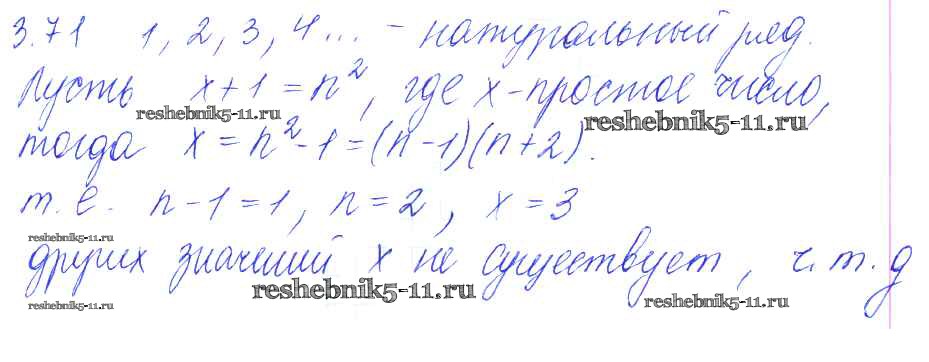 3.71 1, 2, 3, 4... - натуральный ряд.
Пусть x+1 = n², где x - простое число,
reshebnik5-11.ru reshebnik5-11.ru
тогда x = n² - 1 = (n-1)(n+2).
т.е. n-1 = 1, n = 2, x = 3
reshebnik5-11.ru
других значений x не существует, ч.т.д
reshebnik5-11.ru
reshebnik5-11.ru reshebnik5-11.ru